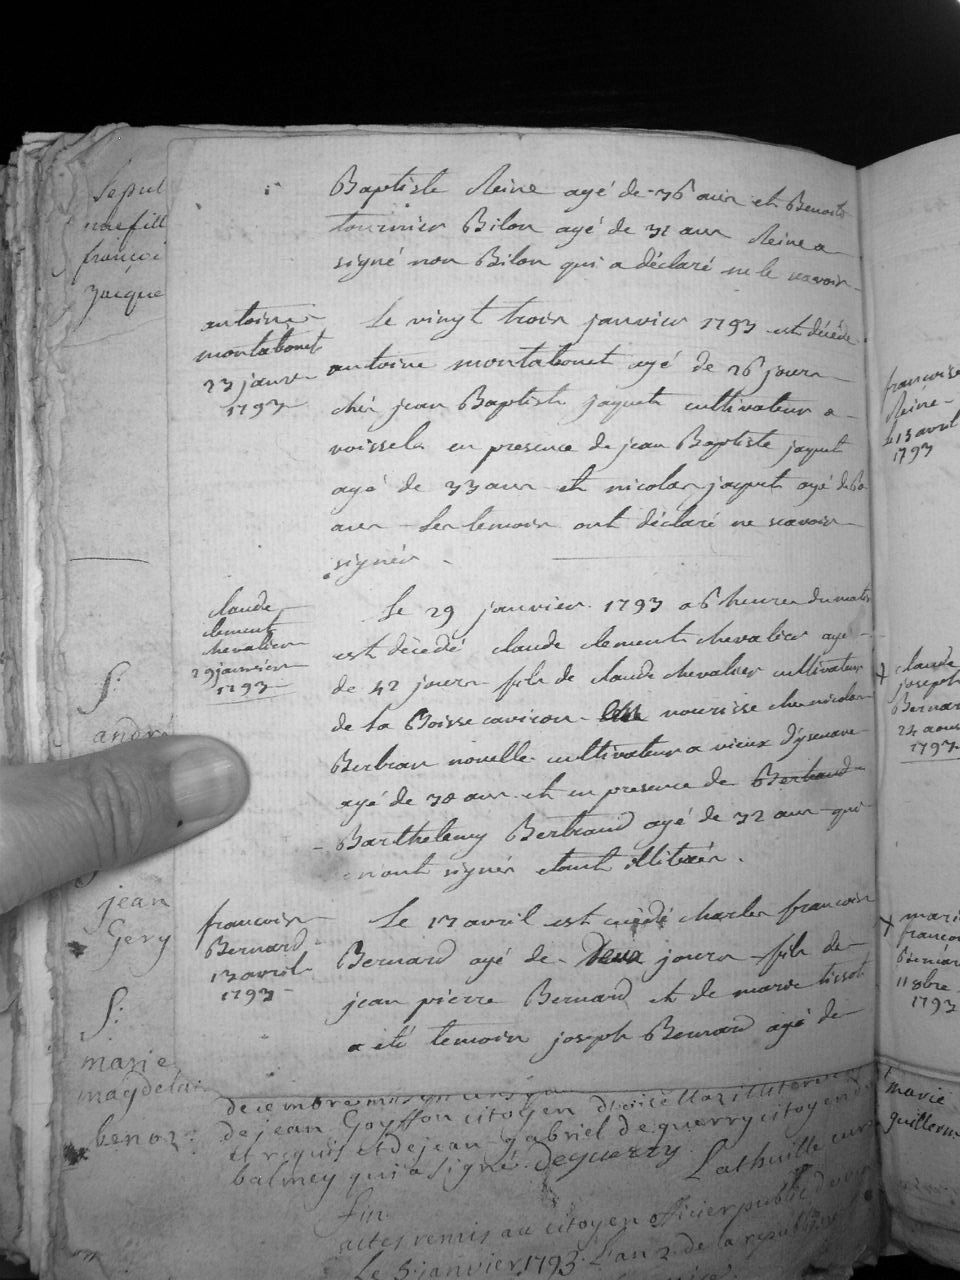 Sepul
nuefill
françoi
Jacque
Baptiste Reine agé de 36 ans et Benoit
tournier Bilon agé de 31 ans Reine a
signé non Bilon qui a déclaré ne le scavoir
antoine
montabonet
23 janv
1793
Le vingt trois janvier 1793 est décédé
antoine montabonet agé de 26 jours
chés jean Baptiste jaquet cultivateur a
voissel en presence de jean Baptiste jaquet
agé de 33 ans et nicolas jaquet agé de 60
ans Les temoin ont déclaré ne scavoir
signér
claude
clement
chevalier
29 janvier
1793
Le 29 janvier 1793 a 6 heures du matin
est décédé claude clement chevalier agé
de 42 jours fils de claude chevalier cultivateur
de la Boisse caviron nourisse ches nicolas
Bertran nouvelle cultivateur a vieux d'ysenave
agé de 38 ans et en presence de Bertrand
Barthelemy Bertrand agé de 32 ans qui
n'ont signér étant illiterér.
francoise
Bernard
13 avril
1793
Le 13 avril est cédé charles francois
Bernard agé de Deux jours fils de
jean pierre Bernard et de marie tissot
a été temoin joseph Bernard agé de
S:
andré
jean
Gery
S:
marie
magdelai
benoz
decembre
de jean Goyffon citoyen
et requis et de jean gabriel de guerry citoyen d
balmey qui a signé. Deguerry Lathuille cur
fin.
actes remis au citoyen officier public de
Le 5 janvier 1793. L'an 2 de la republi
francoise
Reine
Le 13 avril
1793
claude
joseph
Bernar
24 aous
1793
mari
francoi
Bernar
11 8bre
1793
marie
guillerm